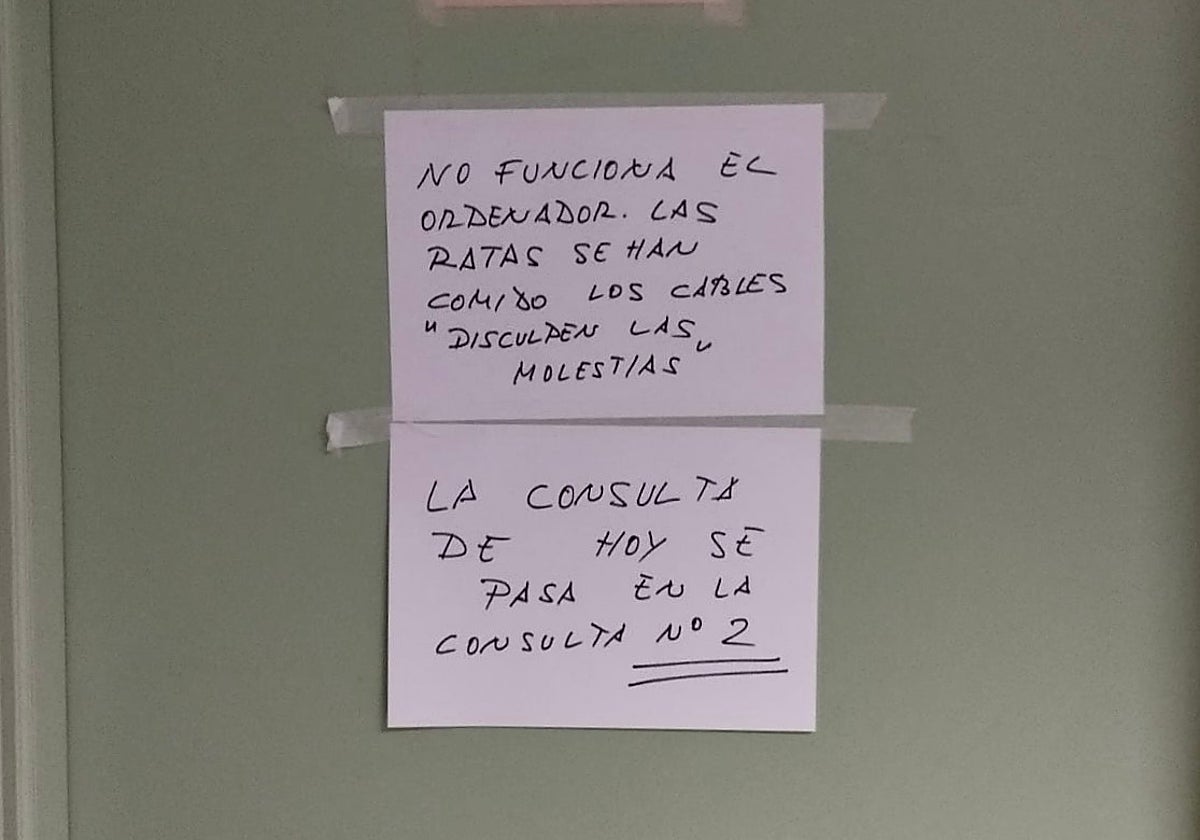 NO FUNCIONA EL
ORDENADOR. LAS
RATAS SE HAN
COMIDO LOS CABLES
"DISCULPEN LAS
MOLESTIAS"
LA CONSULTA
DE HOY SE
PASA EN LA
CONSULTA Nº 2